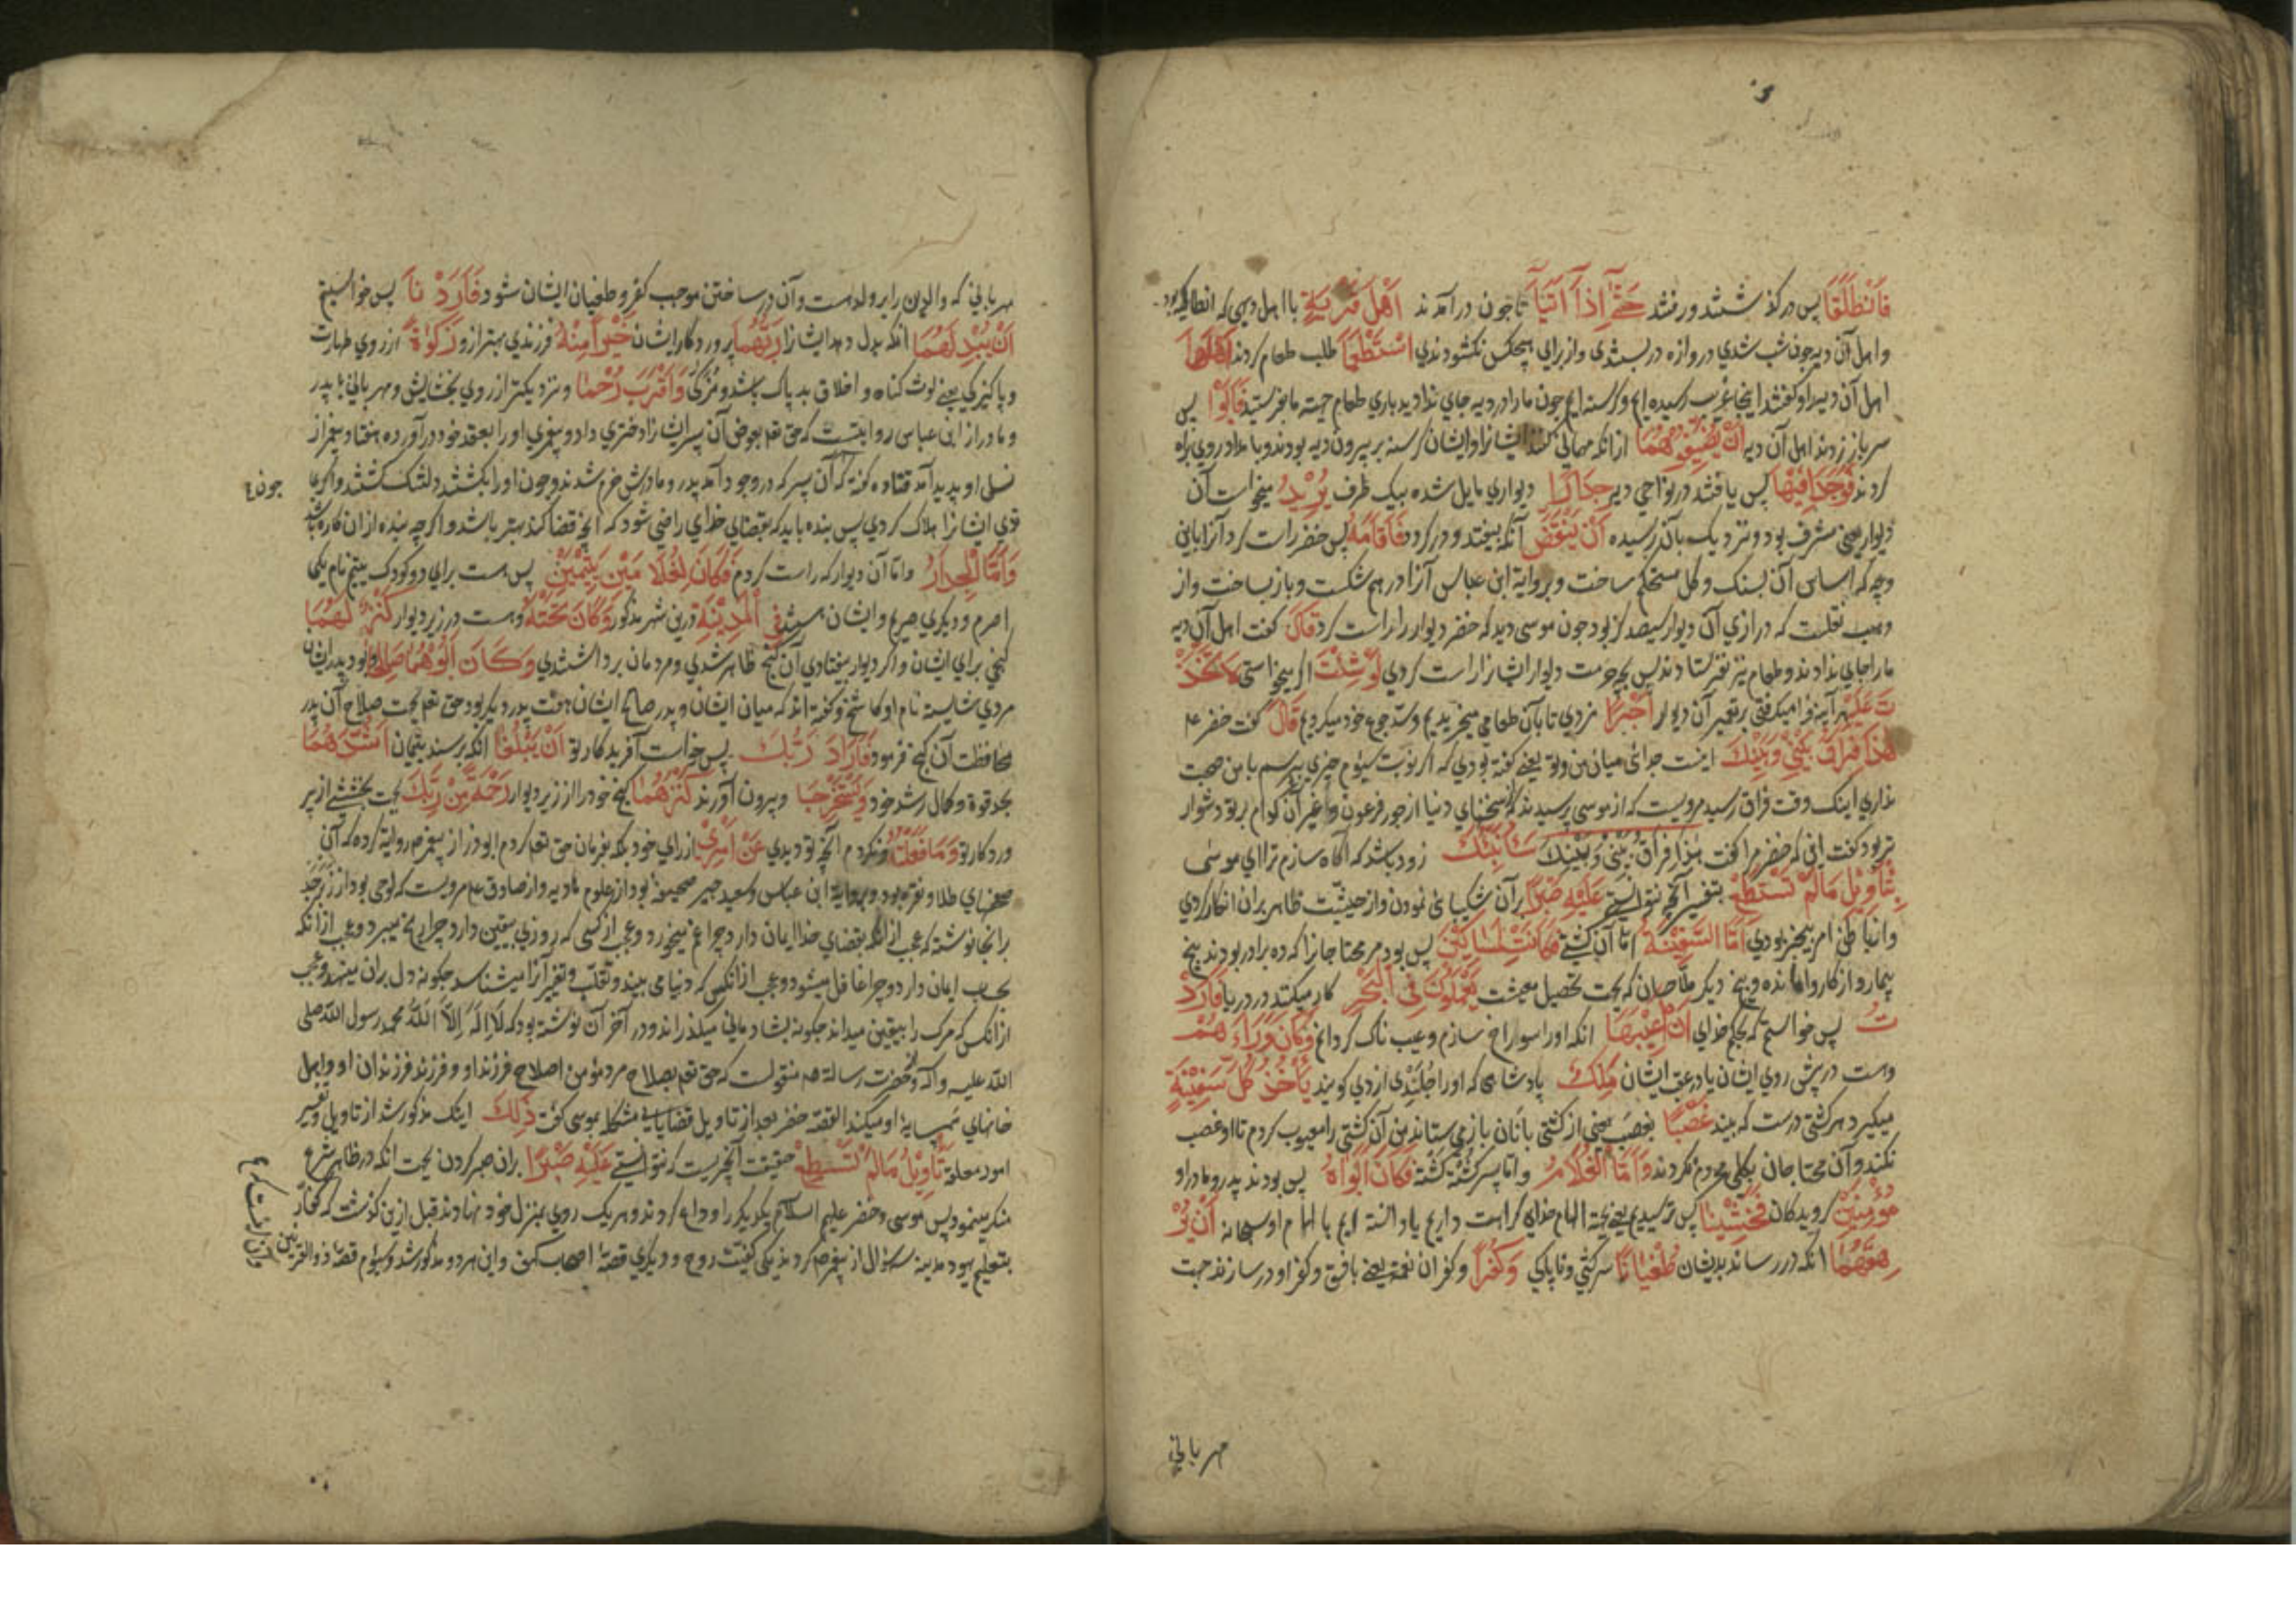 فَانْطَلَقَا پس درگذشتند و رفتند حَتّٰٓى اِذَآ اَتَيَآ تا چون درآمدند اَهْلَ قَرْيَةٍ با اهل دیهی که انطاکیه بود
و اهل آن دیه چون شب شدی دروازه دربستندی و از برای هیچکس نگشودندی اسْتَطْعَمَآ طلب طعام کردند اَهْلَهَا
اهل آن دیه را و گفتند اینجا غریب رسیده ایم و گرسنه ایم چون ما را در دیه جای ندادید باری طعام جهة ما بفرستید فَاَبَوْا پس
سر باز زدند اهل آن دیه اَنْ يُضَيِّفُوهُمَا از آنکه مهمانی کنند ایشانرا و ایشان گرسنه بر بیرون دیه بودند و بامداد روی براه
کردند فَوَجَدَا فِيْهَا پس یافتند در نواحی دیه جِدَارًا دیواری مایل شده بیک طرف يُرِيْدُ میخواست آن
دیوار یعنی مشرف بود و نزدیک بآن رسیده اَنْ يَنْقَضَّ آنکه بیفتد و در گردد فَاَقَامَهُ پس خضر راست کرد آنرا یعنی
وجه که اساس آن بسنگ و گل مستحکم ساخت و بروایة ابن عباس آنرا در هم شکست و باز بساخت و از
وهب نقلست که درازی آن دیوار سیصد گز بود چون موسی دید که خضر دیوار را راست کرد قَالَ گفت اهل آن دیه
ما را جای ندادند و طعام نیز نفرستادند پس بچه جهت دیوار ایشانرا راست کردی لَوْ شِئْتَ اگر میخواستی لَاتَّخَذْ
تَ عَلَيْهِ هر آینه فرا میگرفتی بر تعمیر آن دیوار اَجْرًا مزدی تا بآن طعامی میخریدیم و سد جوع خود میکردیم قَالَ گفت خضر ع م
هٰذَا فِرَاقُ بَيْنِيْ وَبَيْنِكَ اینست جدائی میان من و تو یعنی گفته بودی که اگر نوبت سیوم چیزی بپرسم با من صحبت
نداری اینک وقت فراق رسید مرویست که از موسی پرسیدند که از سختیهای دنیا از جور فرعون و غیر آن کدام بر تو دشوار
تر بود گفت آنی که خضر مرا گفت هٰذَا فِرَاقُ بَيْنِيْ وَبَيْنِكَ سَاُنَبِّئُكَ زود باشد که آگاه سازم ترا ای موسی
بِتَاْوِيْلِ مَالَمْ تَسْتَطِعْ بتفسیر آنچه نتوانستی عَلَيْهِ صَبْرًا بر آن شکیبائی نمودن و از حیثیت ظاهر بر آن انکار کردی
و از باطن امر بیخبر بودی اَمَّا السَّفِيْنَةُ اما آن کشتی فَكَانَتْ لِمَسَاكِيْنَ پس بود مر محتاجانرا که ده برادر بودند پنج
بیمار و از کار وامانده و پنج دیگر ملاحان که بجهت تحصیل معیشت يَعْمَلُوْنَ فِى الْبَحْرِ کار میکنند در دریا فَاَرَدْ
تُ پس خواستم که بحکم خدای اَنْ اَعِيْبَهَا آنکه او را سوراخ سازم و عیب ناک گردانم وَكَانَ وَرَآءَهُمْ
و هست در پیش روی ایشان یا در عقب ایشان مَلِكٌ پادشاهی که او را جلندی ازدی گویند يَاْخُذُ كُلَّ سَفِيْنَةٍ
میگیرد هر کشتی درست که بیند غَصْبًا بغصب یعنی از کشتی بانان باز می ستاند پس آن کشتی را معیوب کردم تا او غصب
نکند و آن محتاجان بکلی محروم نگردند وَاَمَّا الْغُلَامُ و اما پسر کشته گشته فَكَانَ اَبَوَاهُ پس بودند پدر و مادر او
مُؤْمِنَيْنِ گرویدگان فَخَشِيْنَا پس ترسیدیم یعنی بجهة الهام خدای کراهت داریم یا دانسته ایم با الهام او سبحانه اَنْ يُرْ
هِقَهُمَا آنکه در رساند بدیشان طُغْيَانًا سرکشی و ناپاکی وَكُفْرًا و کفران نعمت یعنی با فسق و کفر او درسازند جهت
مهربانی
مهربانی که والدین را بر ولدست و آن درساختن موجب کفر و طغیان ایشان شود فَاَرَدْنَا پس خواستیم
اَنْ يُبْدِلَهُمَا آنکه بدل دهد ایشانرا رَبُّهُمَا پروردگار ایشان خَيْرًا مِنْهُ فرزندی بهتر از و زَكٰوةً از روی طهارت
و پاکیزگی یعنی از لوث گناه و اخلاق بد پاک باشد و مزکی وَاَقْرَبَ رُحْمًا و نزدیکتر از روی بخشایش و مهربانی با پدر
و مادر از ابن عباس روایتست که حق تعم بعوض آن پسر ایشانرا دختری داد و پیغمبری او را بعقد خود درآورده هفتاد پیغمبر از
نسل او پدید آمد قتاده گفته که آن پسر که در وجود آمد پدر و مادرش خرم شدند و چون او را بکشتند دلتنگ گشتند و اگر بما
چون
ندی ایشانرا هلاک کردی پس بنده باید که بقضای خدای راضی شود که آنچه قضا کند بهتر باشد و اگر چه بنده از ان کاره باشد
وَاَمَّا الْجِدَارُ و اما آن دیوار که راست کردم فَكَانَ لِغُلَامَيْنِ يَتِيْمَيْنِ پس هست برای دو کودک یتیم نام یکی
اصرم و دیگری صریم و ایشان هستند فِى الْمَدِيْنَةِ درین شهر مذکور وَكَانَ تَحْتَهُ و هست در زیر دیوار كَنْزٌ لَهُمَا
گنجی برای ایشان و اگر دیوار بیفتادی آن گنج ظاهر شدی و مردمان برداشتندی وَكَانَ اَبُوْهُمَا صَالِحًا و بود پدر ایشان
مردی شایسته نام او کاشح و گفته اند که میان ایشان و پدر صالح ایشان هفت پدر دیگر بود حق تعم بجهت صلاح آن پدر
محافظت آن گنج فرمود فَاَرَادَ رَبُّكَ پس خواست آفریدگار تو اَنْ يَبْلُغَا آنکه برسند یتیمان اَشُدَّهُمَا
بحد قوة و کمال رشد خود وَيَسْتَخْرِجَا و بیرون آورند كَنْزَهُمَا گنج خود را از زیر دیوار رَحْمَةً مِنْ رَبِّكَ بجهت بخششی از پر
وردگار تو وَمَا فَعَلْتُهُ و نکردم آنچه تو دیدی عَنْ اَمْرِيْ از رای خود بلکه بفرمان حق تعم کردم ابوذر از پیغمبر صم روایة کرده که آن
صحفهای طلا و نقره بود و بروایة ابن عباس و سعید جبیر صحیفه بود از علوم مادیه و از صادق عم مرویست که لوحی بود از زبرجد
بر آنجا نوشته که عجب از آنکه بقضای خدا ایمان دارد چرا غم میخورد و عجب از کسی که بروزی یقین دارد چرا رنج میبرد و عجب از آنکه
بحساب ایمان دارد چرا غافل میشود و عجب از آنکس که دنیا می بیند و تقلب و تغیر آنرا میشناسد چگونه دل بران مینهد و عجب
از آنکس که مرگ را بیقین میداند چگونه بشادمانی میگذراند و در آخر آن نوشته بود که لَا اِلٰهَ اِلَّا اللّٰهُ محمد رسول الله صلی
الله علیه و آله و حضرت رسالة صم منقولست که حق تعم بصلاح مرد مؤمن اصلاح فرزند او و فرزند فرزندان او و اهل
خانهای همسایۀ او میکند القصه خضر بعد از تاویل قضایای مشکله موسی گفت ذٰلِكَ اینک مذکور شد از تاویل و تفسیر
امور معلقه تَاْوِيْلُ مَالَمْ تَسْطِعْ حقیقت آنچیزیست که نتوانستی عَلَيْهِ صَبْرًا بران صبر کردن بجهت آنکه در ظاهر شرع
منکر مینمود پس موسی و خضر علیهم السلام یکدیگر را وداع کردند و هر یک روی بمنزل خود نهادند قبل ازین گذشت که کفار
بتعلیم یهود مدینه سؤال از پیغمبر صم کردند یکی کیفیت روح و دیگری قصۀ اصحاب کهف و این هر دو مذکور شد و سیوم قصۀ ذوالقرنین